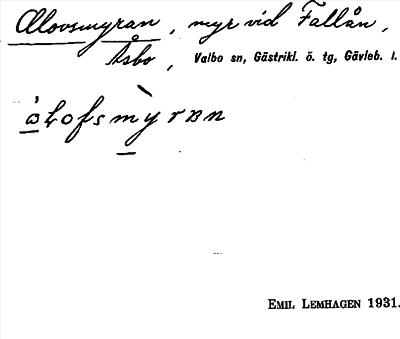 Olovsmyran, myr vid Fallån,
Åsbo, Valbo sn, Gästrikl. ö. tg, Gävleb. l.
EMIL LEMHAGEN 1931.